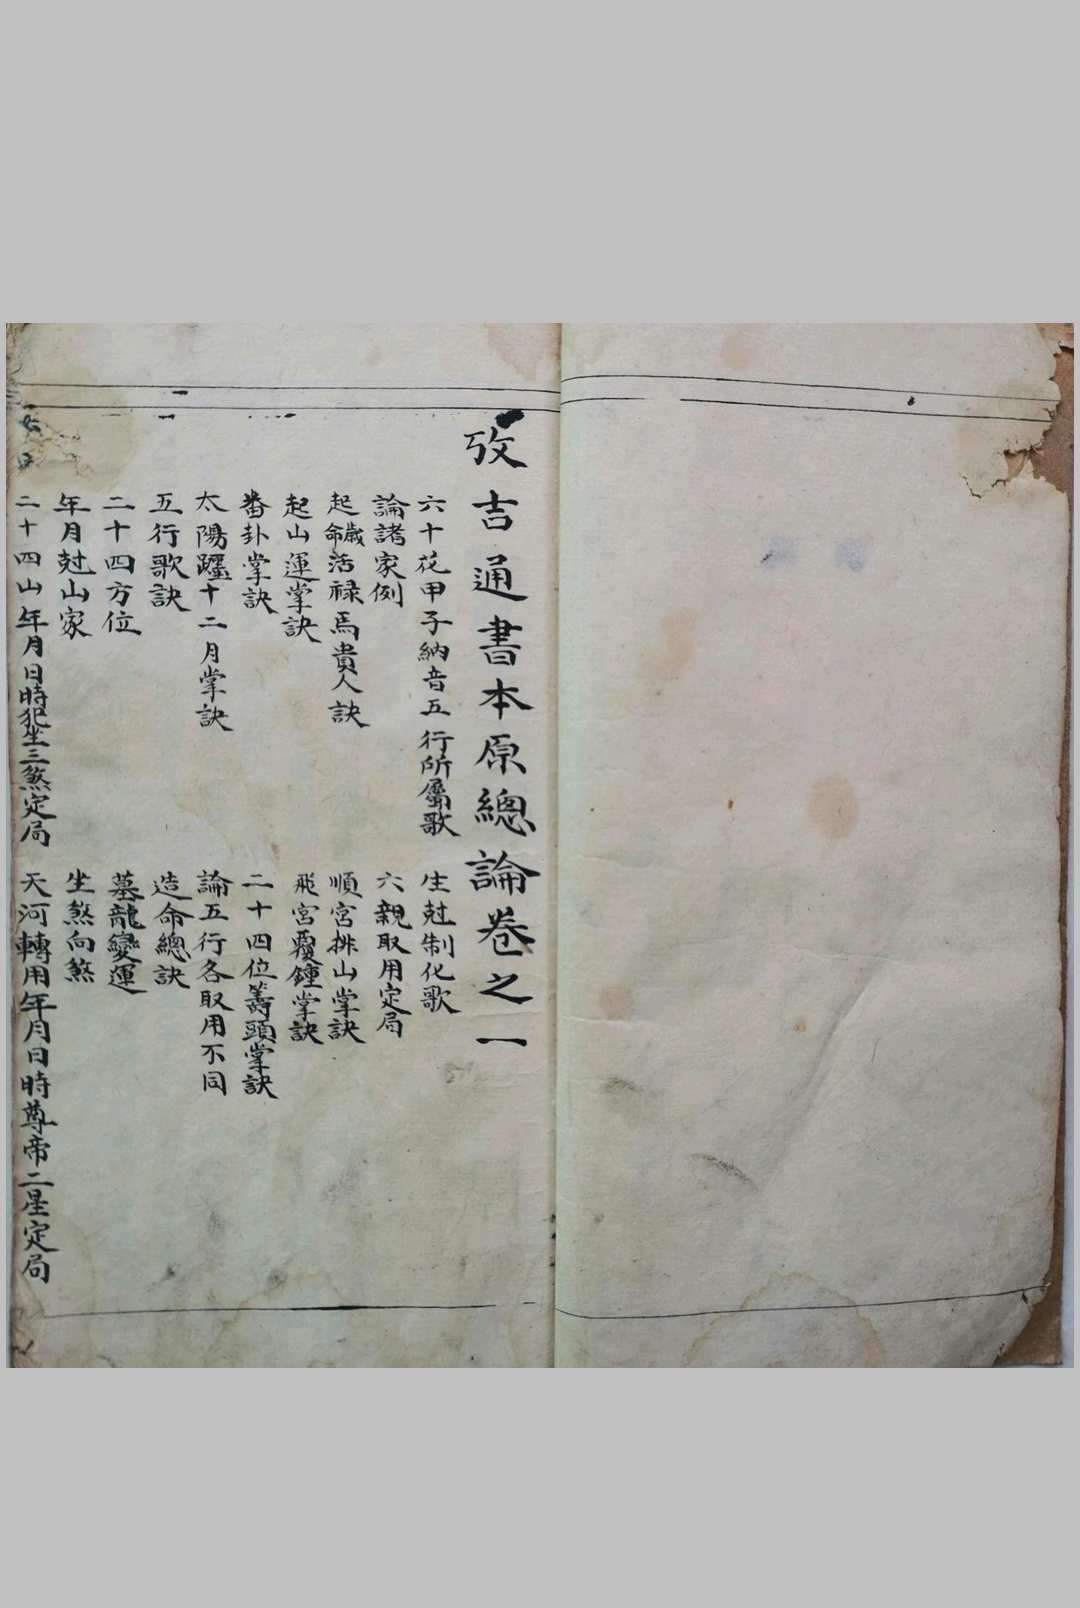 攷吉通書本原總論卷之一
六十花甲子納音五行所屬歌　生尅制化歌
論諸家例　六親取用定局
起歲命活祿馬貴人訣　順宮排山掌訣
起山運掌訣　飛宮覆鐘掌訣
番卦掌訣　二十四位籌頭掌訣
太陽躔十二月掌訣　論五行各取用不同
五行歌訣　造命總訣
二十四方位　墓龍變運
年月尅山家　坐煞向煞
二十四山年月日時犯坐三煞定局　天河轉用年月日時尊帝二星定局